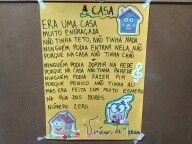 A CASA
ERA UMA CASA
MUITO ENGRAÇADA
NÃO TINHA TETO, NÃO TINHA NADA
NINGUÉM PODIA ENTRAR NELA, NÃO
PORQUE NA CASA NÃO TINHA CHÃO
NINGUÉM PODIA DORMIR NA REDE
PORQUE NA CASA NÃO TINHA PAREDE
NINGUÉM PODIA FAZER PIPI
PORQUE PENICO NÃO TINHA ALI
MAS ERA FEITA COM MUITO ESMERO
NA RUA DOS BOBOS
NÚMERO ZERO.
Vinicius de Moraes